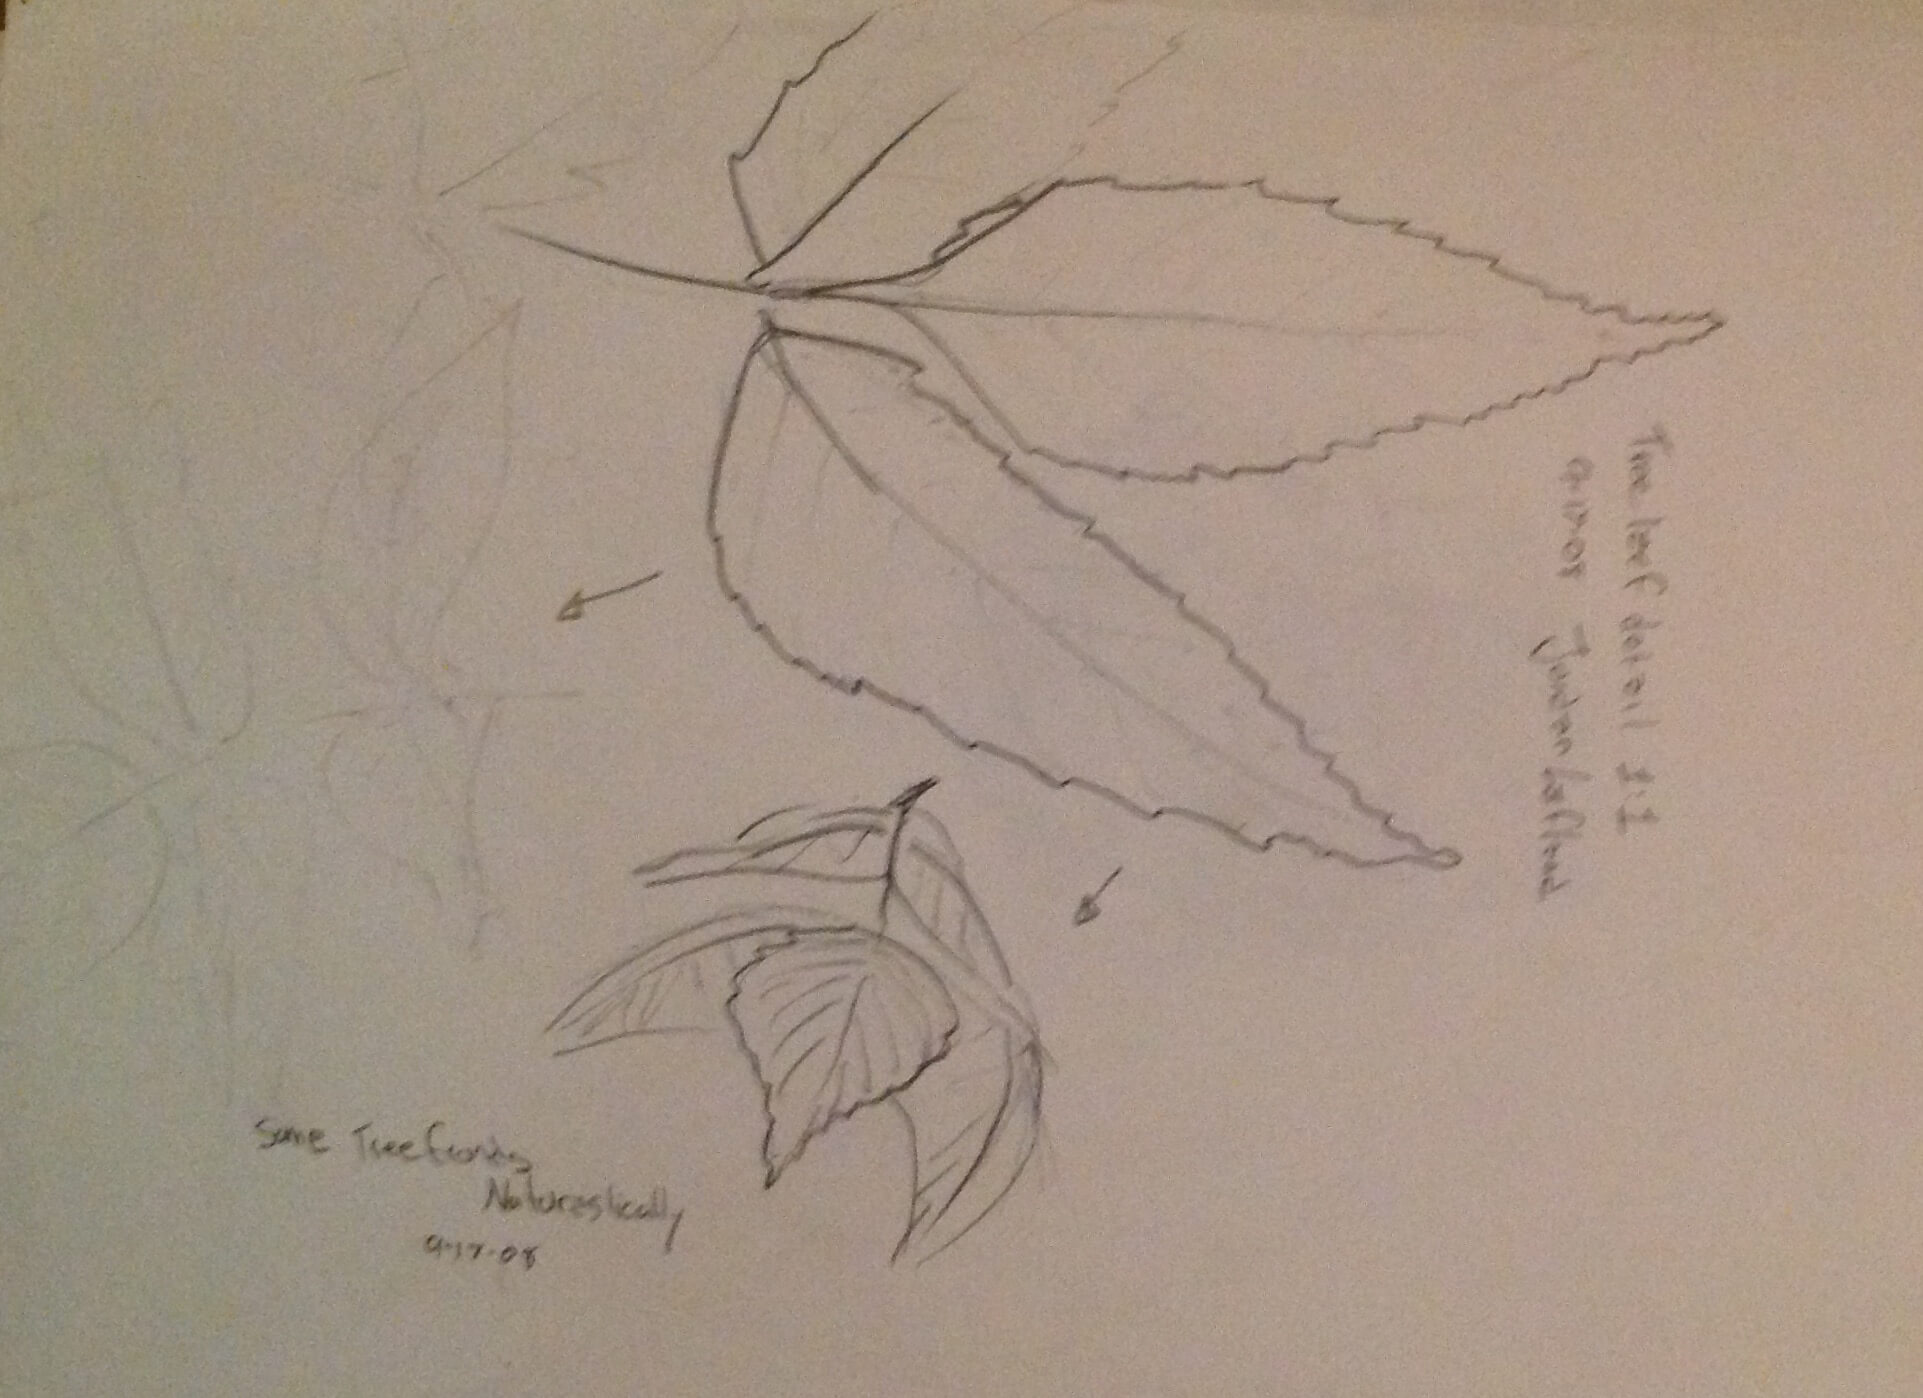 Tree leaf detail 1:1
9-17-08 Jordan
Some Tree fronds
Naturastically
9-17-08